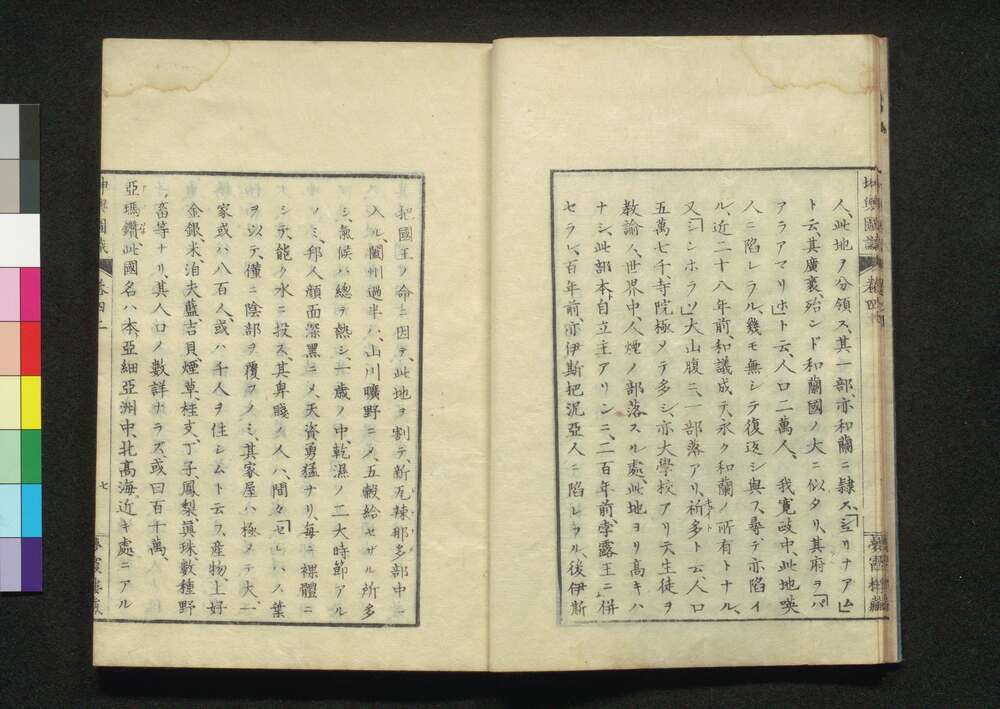 坤輿圖識 卷四下
人、此地ヲ分領ス、其一部、亦和蘭ニ隷ス、「シリナア」
ト云、其廣袤殆ンド和蘭國ノ大ニ似タリ、其府ヲ「パ
アラアマリホ」ト云、人口二萬人、我寛政中、此地暎
人ニ陷レラル、幾モ無シテ復返シ與ス、尋デ亦陷イ
ル、近二十八年前和議成テ、永ク和蘭ノ所有トナル、
又「シンホラソ」大山腹ニ、一部落アリ、祈多ト云、人口
キット
五萬七千、寺院極メテ多シ、亦大學校アリ天生徒ヲ
教諭ス、世界中、人煙ノ部落スル處、此地ヨリ高キハ
ナシ、此部本、自立主アリシニ、二百年前、孛露王ニ併
セラレ、百年前、亦伊斯把泥亞人ニ陷レラル、後伊斯
把國王ノ命ニ因テ、此地ヲ割テ、新瓦辣那多部中ニ
入ル、闔州過半ハ、山川曠野ニメ、五穀給セザル所多
シ、氣候ハ總テ熱シ、一歳ノ中、乾濕ノ二大時節アル
ノミ、邦人顔面深黑ニメ、天資勇猛ナリ、毎ニ裸體ニ
シテ、能ク水ニ投ス、其卑賤ノ人ハ、間々、「モレ」ハス葉
ヲ以テ、僅ニ陰部ヲ覆フノミ、其家屋ハ極メテ大一
家或ハ八百人、或ハ千人ヲ住シムト云フ、産物上好
金銀、米、泊夫藍、吉貝、煙草、桂支、丁子、鳳梨、眞珠數種野
畜等ナリ、其人口ノ數詳ナラズ、或曰百十萬、
亞瑪鑽、此國名ハ本亞細亞洲中、北髙海近キ處ニアル
坤輿圖識 卷四下
七